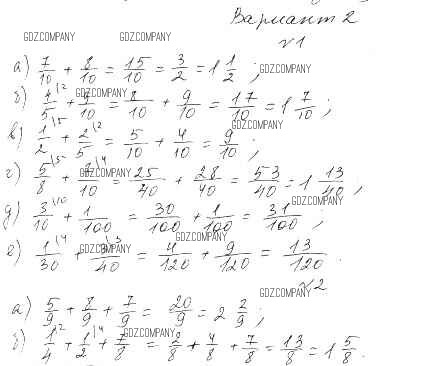 Вариант 2
GDZ.COMPANY GDZ.COMPANY
№1
а) 7/10 + 8/10 = 15/10 = 3/2 = 1 1/2 ; GDZ.COMPANY
б) 4/5 \2 + 9/10 = 8/10 + 9/10 = 17/10 = 1 7/10 ; GDZ.COMPANY
GDZ.COMPANY
в) 1/2 \5 + 2/5 \2 = 5/10 + 4/10 = 9/10 ;
г) 5/8 \5 + 7/10 \4 = 25/40 + 28/40 = 53/40 = 1 13/40 , GDZ.COMPANY
GDZ.COMPANY
д) 3/10 \10 + 1/100 = 30/100 + 1/100 = 31/100 ;
GDZ.COMPANY
е) 1/30 \4 + 3/40 \3 = 4/120 + 9/120 = 13/120 . GDZ.COMPANY
№2
GDZ.COMPANY
а) 5/9 + 8/9 + 7/9 = 20/9 = 2 2/9 ;
б) 1/4 \2 + 1/2 \4 + 7/8 = 2/8 + 4/8 + 7/8 = 13/8 = 1 5/8 . GDZ.COMPANY